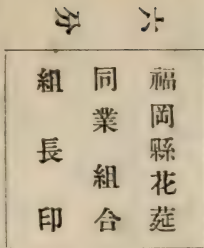 六分
福岡縣花莚
同業組合
組長印